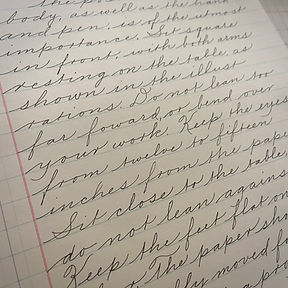 body, as well as the hand
and pen, is of the utmost
importance. Sit square
in front, with both arms
resting on the table, as
shown in the illust
rations. Do not lean too
far foward, or bend over
your work. Keep the eyes
from twelve to fifteen
inches from the pape
Sit close to the table,
do not lean agains
Keep the feet flat on
The paper sho
moved fo